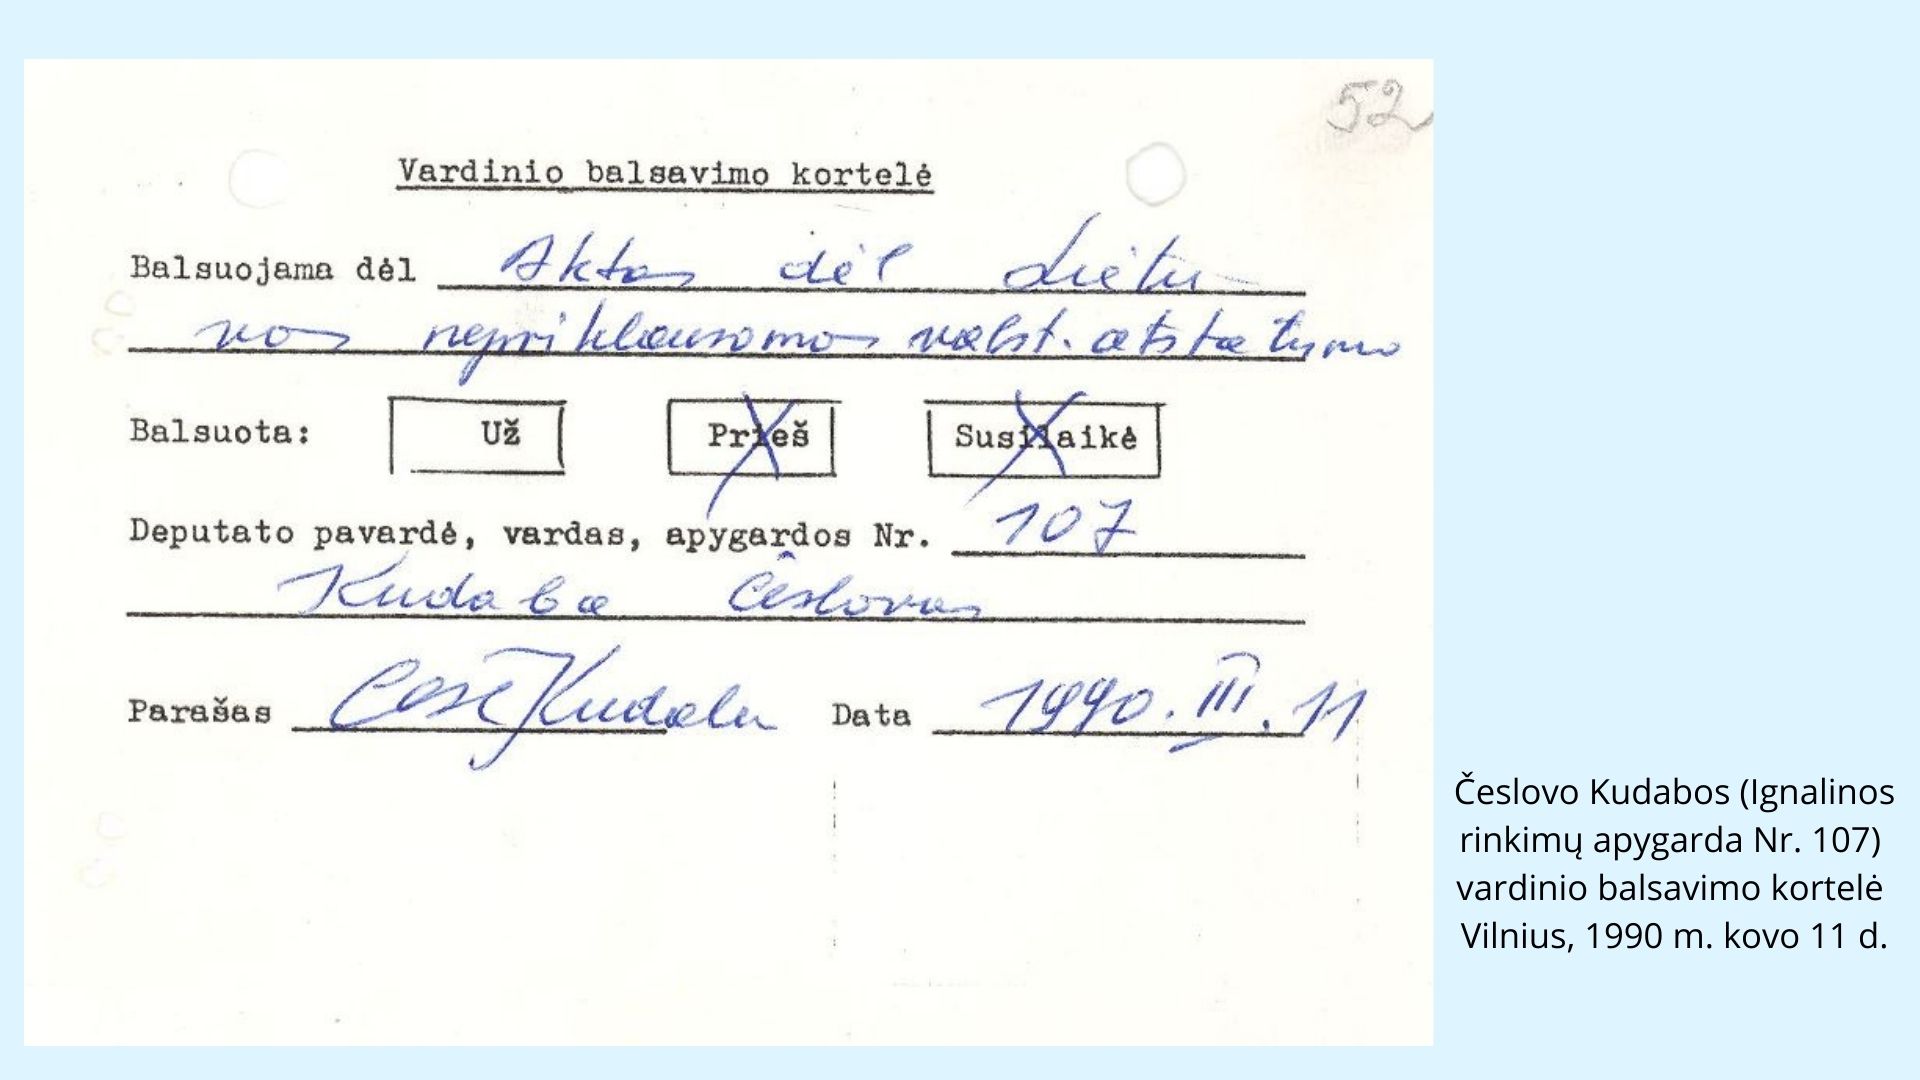 52
Vardinio balsavimo kortelė
Balsuojama dėl Aktas dėl Lietu-
vos nepriklausomos valst. atstatymo
Balsuota: Už Prieš Susilaikė
Deputato pavardė, vardas, apygardos Nr. 107
Kudaba Česlovas
Parašas Česl Kudaba Data 1990. III. 11
Česlovo Kudabos (Ignalinos
rinkimų apygarda Nr. 107)
vardinio balsavimo kortelė
Vilnius, 1990 m. kovo 11 d.